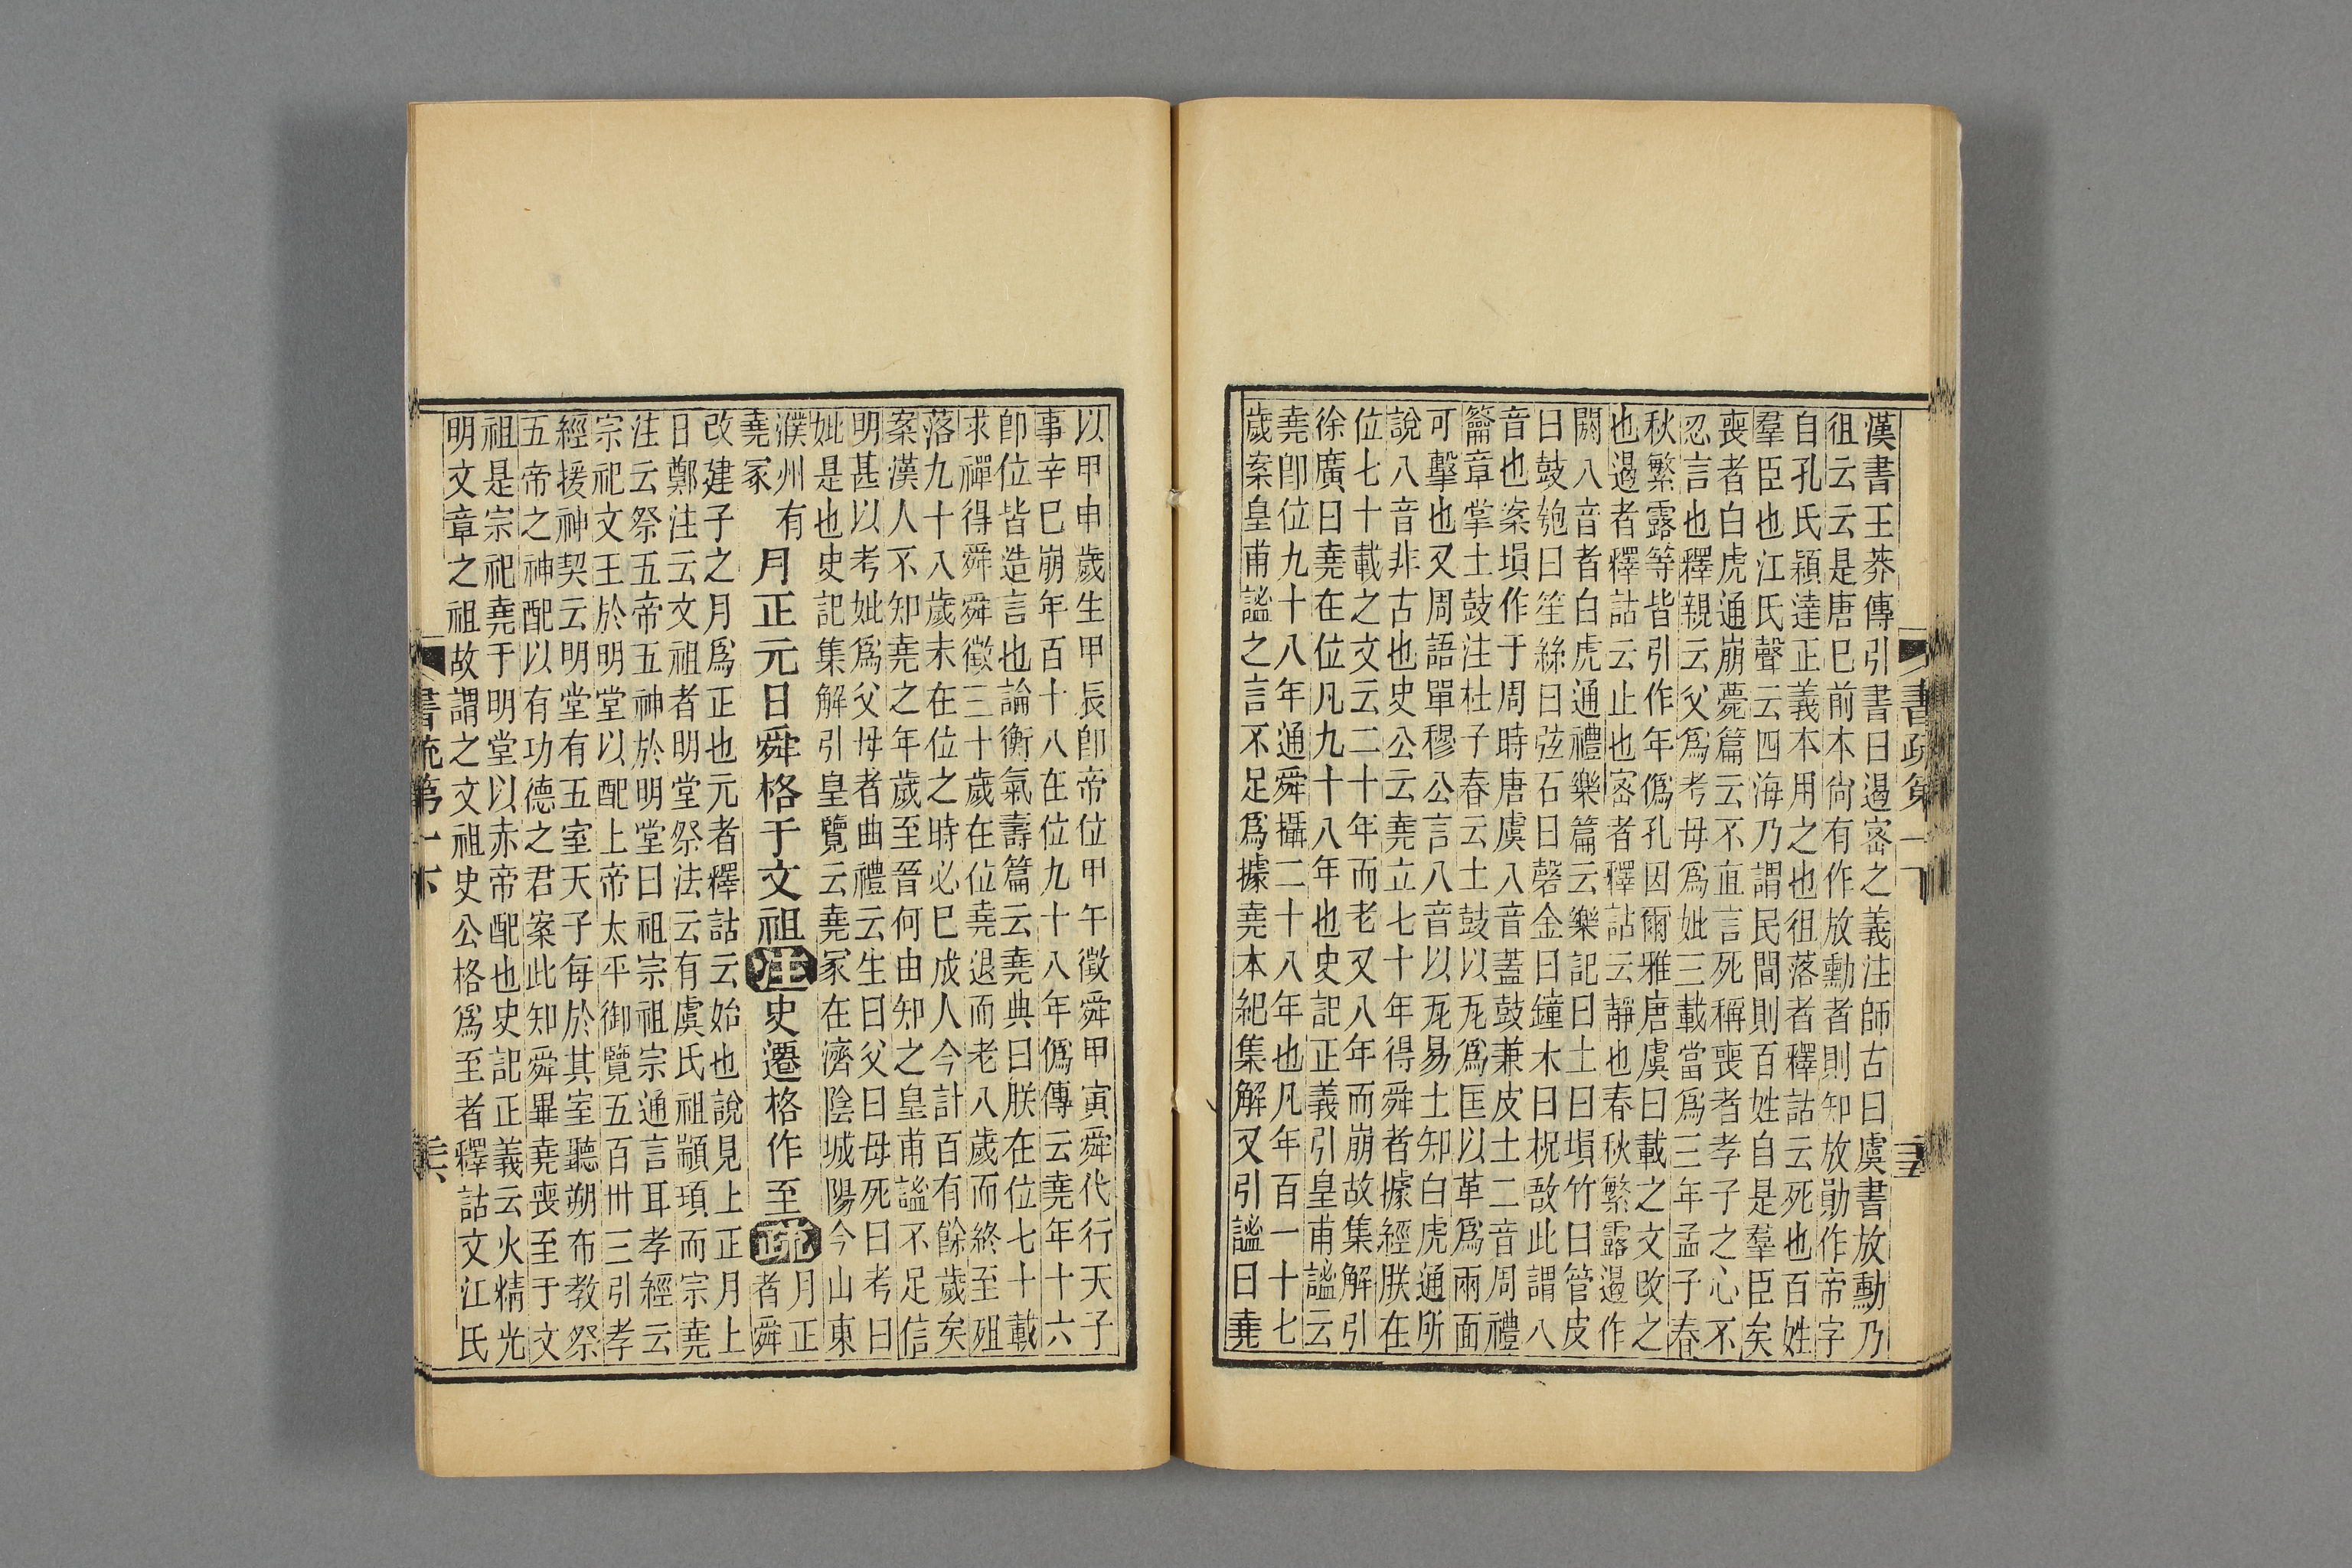 漢書王莽傳引書曰遏密之義注師古曰虞書放勳乃
徂云云是唐已前本尙有作放勳者則知放勛作帝字
自孔氏穎達正義本用之也徂落者釋詁云死也百姓
羣臣也江氏聲云四海乃謂民間則百姓自是羣臣矣
喪者白虎通崩薨篇云不直言死稱喪者孝子之心不
忍言也釋親云父爲考母爲妣三載當爲三年孟子春
秋繁露等皆引作年僞孔因爾雅唐虞曰載之文改之
也遏者釋詁云止也密者釋詁云靜也春秋繁露遏作
閼八音者白虎通禮樂篇云樂記曰土曰塤竹曰管皮
曰鼓匏曰笙絲曰弦石曰磬金曰鐘木曰柷敔此謂八
音也案塤作于周時唐虞八音蓋鼓兼皮土二音周禮
籥章掌土鼓注杜子春云土鼓以瓦爲匡以革爲兩面
可擊也又周語單穆公言八音以瓦易土知白虎通所
說八音非古也史公云堯立七十年得舜者據經朕在
位七十載之文云二十年而老又八年而崩故集解引
徐廣曰堯在位凡九十八年也史記正義引皇甫謐云
堯卽位九十八年通舜攝二十八年也凡年百一十七
歲案皇甫謐之言不足爲據堯本紀集解又引謐曰堯
書疏第一下
以甲申歲生甲辰卽帝位甲午徵舜甲寅舜代行天子
事辛巳崩年百十八在位九十八年僞傳云堯年十六
卽位皆造言也論衡氣壽篇云堯典曰朕在位七十載
求禪得舜舜徵三十歲在位堯退而老八歲而終至殂
落九十八歲未在位之時必已成人今計百有餘歲矣
案漢人不知堯之年歲至晉何由知之皇甫謐不足信
明甚以考妣爲父母者曲禮云生曰父曰母死曰考曰
妣是也史記集解引皇覽云堯冢在濟陰城陽今山東
濮州有
堯冢
月正元日舜格于文祖注史遷格作至疏
月正
者舜
改建子之月爲正也元者釋詁云始也說見上正月上
日鄭注云文祖者明堂祭法云有虞氏祖顓頊而宗堯
注云祭五帝五神於明堂曰祖宗祖宗通言耳孝經云
宗祀文王於明堂以配上帝太平御覽五百卅三引孝
經援神契云明堂有五室天子每於其室聽朔布教祭
五帝之神配以有功德之君案此知舜畢堯喪至于文
祖是宗祀堯于明堂以赤帝配也史記正義云火精光
明文章之祖故謂之文祖史公格爲至者釋詁文江氏
書疏第一下